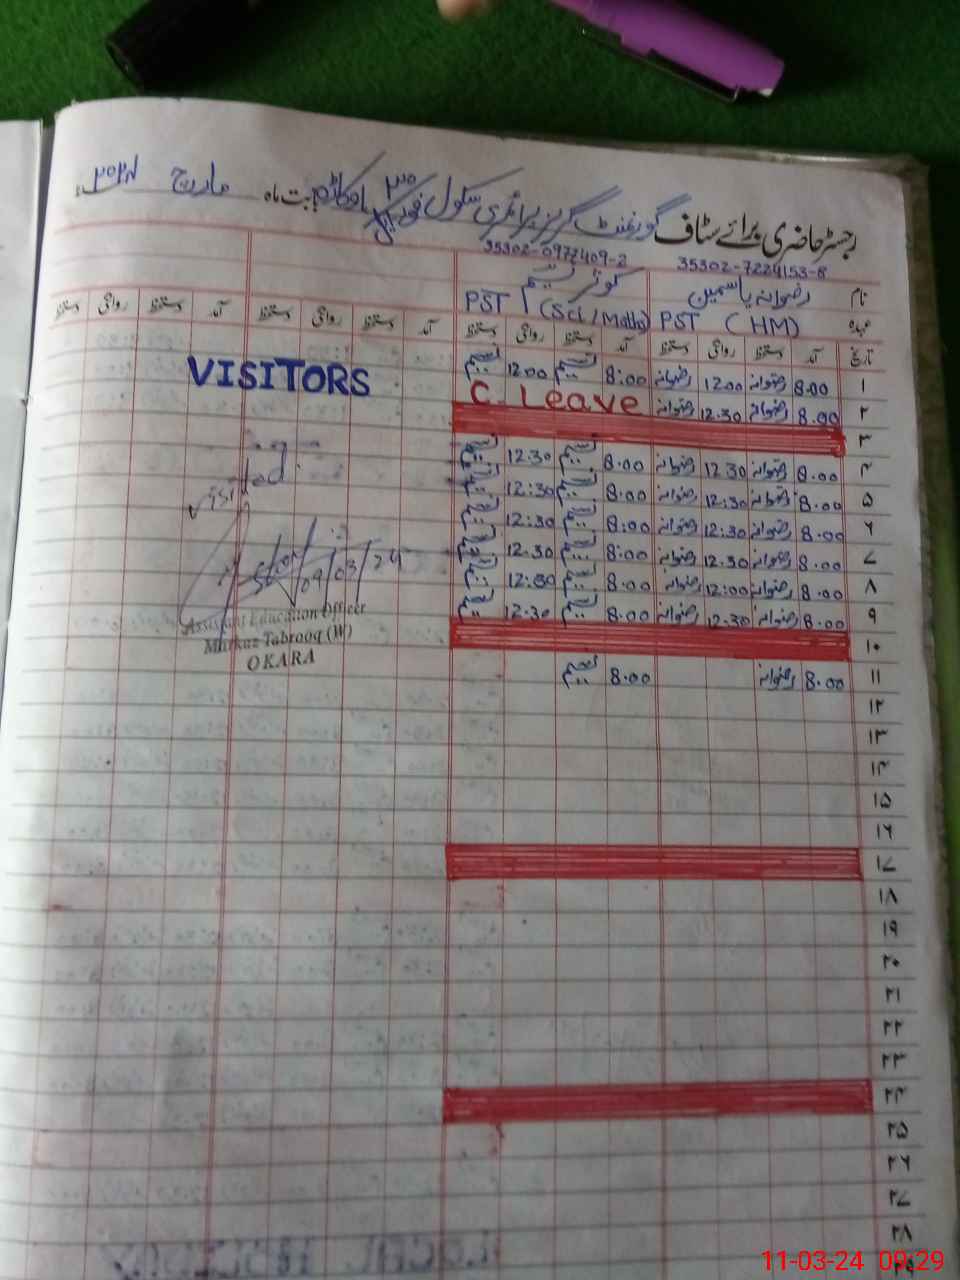 رجسٹر حاضری برائے سٹاف گورنمنٹ گرلز پرائمری سکول اوکاڑہ بابت ماہ مارچ ۲۰۲۴ء
35302-7224153-8 35302-0977409-2
نام رضوانہ یاسمین کوثر نسیم
عہدہ PST (HM) PST (Sci/Maths)
تاریخ آمد دستخط روانگی دستخط آمد دستخط روانگی دستخط آمد دستخط روانگی دستخط آمد دستخط روانگی دستخط
۱ 8.00 رضوانہ 12.00 رضوانہ 8:00 نسیم 12.00 نسیم
VISITORS
۲ 8.00 رضوانہ 12.30 رضوانہ C. Leave
۳
۴ 8.00 رضوانہ 12.30 رضوانہ 8.00 نسیم 12.30 نسیم
۵ 8.00 رضوانہ 12:30 رضوانہ 8.00 نسیم 12:30 نسیم
۶ 8.00 رضوانہ 12:30 رضوانہ 8:00 نسیم 12:30 نسیم
۷ 8.00 رضوانہ 12:30 رضوانہ 8:00 نسیم 12.30 نسیم
۸ 8.00 رضوانہ 12:00 رضوانہ 8.00 نسیم 12:00 نسیم
۹ 8.00 رضوانہ 12.30 رضوانہ 8.00 نسیم 12.30 نسیم
Visited
09/03/24
Assistant Education Officer
Markaz Tabrooq (W)
OKARA
۱۰
۱۱ 8.00 رضوانہ 8.00 نسیم
۱۲
۱۳
۱۴
۱۵
۱۶
۱۷
۱۸
۱۹
۲۰
۲۱
۲۲
۲۳
۲۴
۲۵
۲۶
۲۷
۲۸
۲۹
11-03-24 09:29